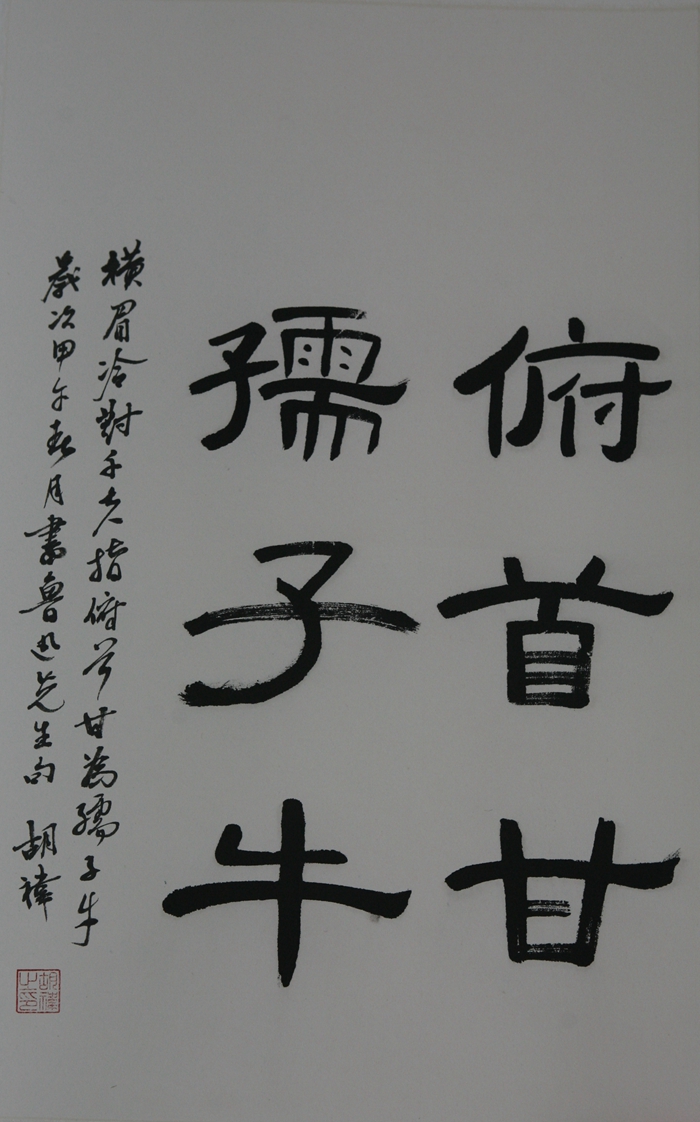 俯首甘
孺子牛
橫眉冷對千夫指俯首甘為孺子牛
歲次甲午春月書魯迅先生句
胡褘
胡褘之印